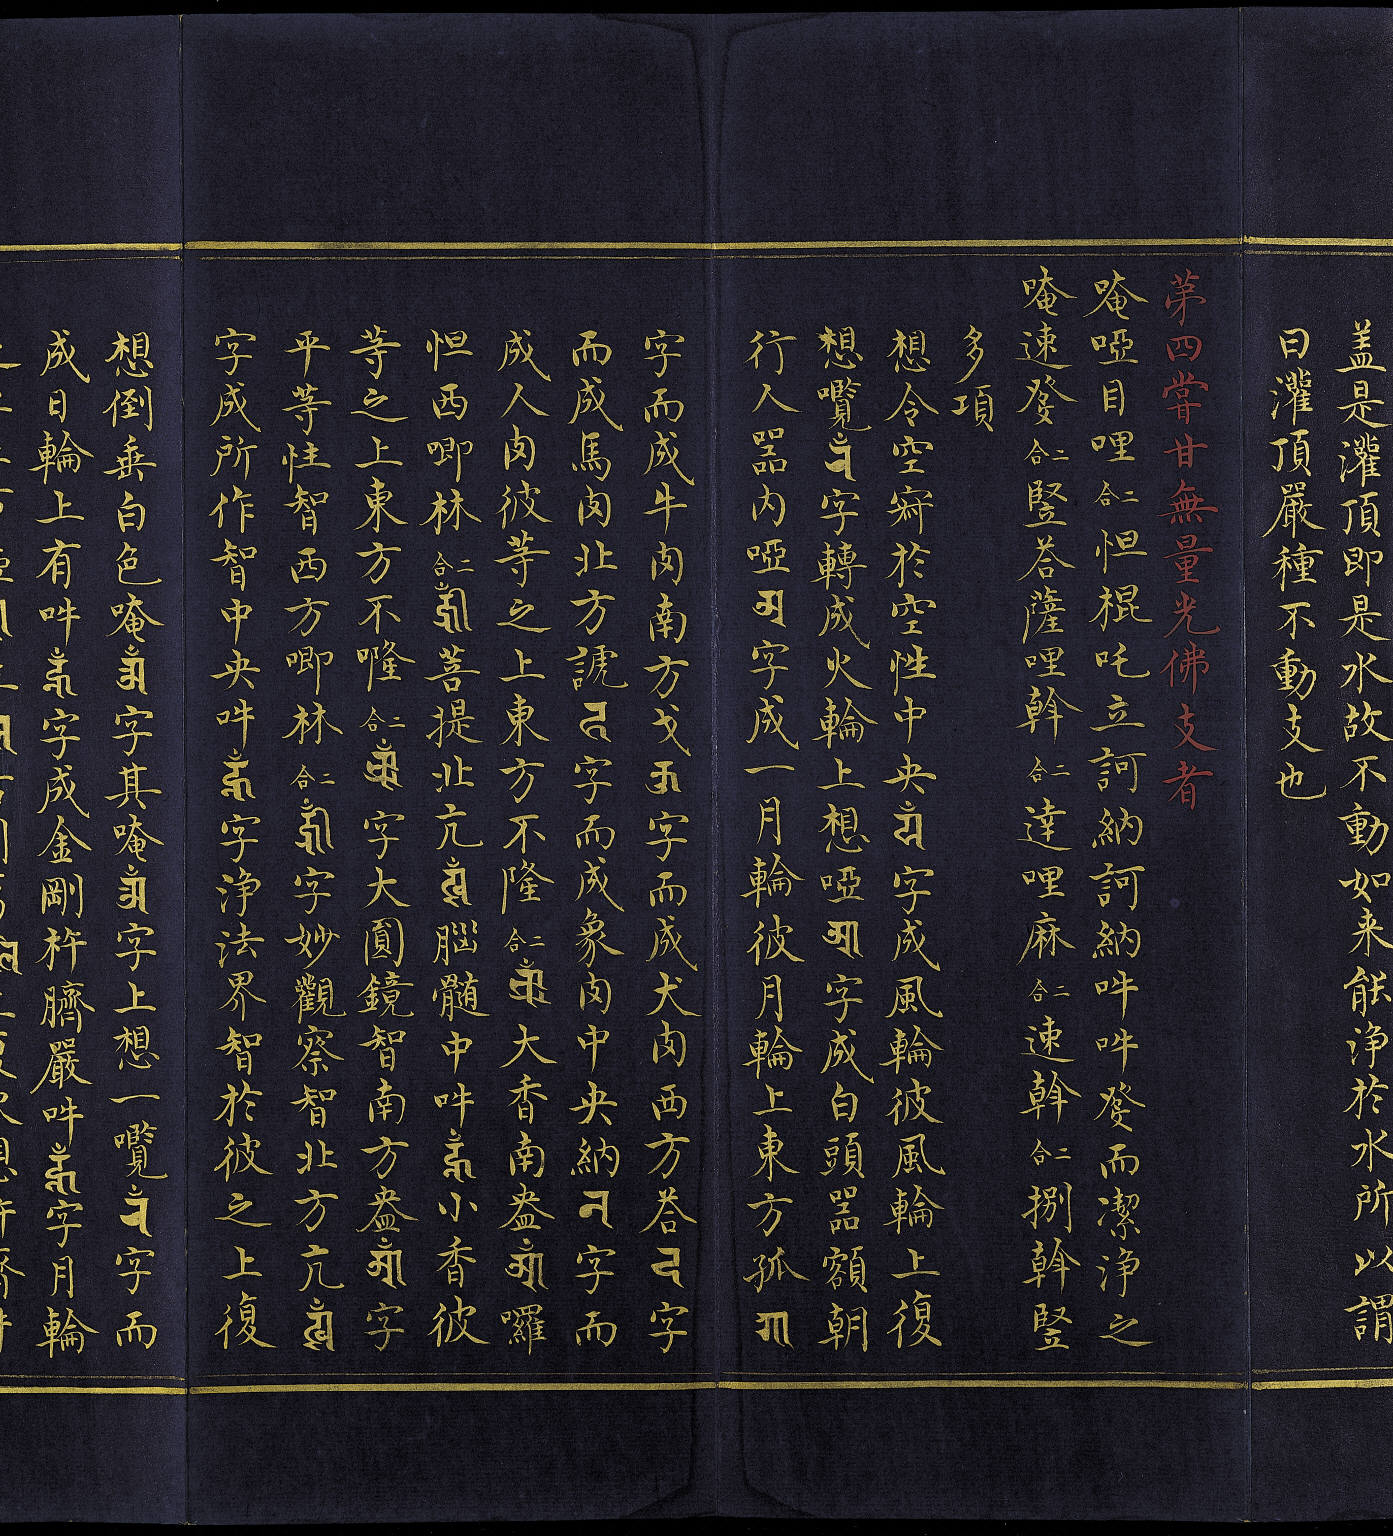 盖是灌頂即是水故不動如来能淨於水所以謂
曰灌頂嚴種不動支也
苐四甞甘無量光佛支者
唵啞目哩二合怛棍吒立訶納訶納吽吽癹而潔淨之
唵速癹二合竪荅薩哩斡二合達哩麻二合速斡二合捌斡竪
多項
想令空寂於空性中央 字成風輪彼風輪上復
想囕 字轉成火輪上想啞 字成白頭器額朝
行人器內啞 字成一月輪彼月輪上東方孤
字而成牛肉南方戈 字而成犬肉西方荅 字
而成馬肉北方諕 字而成象肉中央納 字而
成人肉彼等之上東方不隆二合 大香南盎 囉
怛西唧林二合 菩提北亢 腦髓中吽 小香彼
等之上東方不隆二合 字大圓鏡智南方盎 字
平等性智西方唧林二合 字妙觀察智北方亢
字成所作智中央吽 字淨法界智於彼之上復
想倒垂白色唵 字其唵 字上想一囕 字而
成日輪上有吽 字成金剛杵臍嚴吽 字月輪